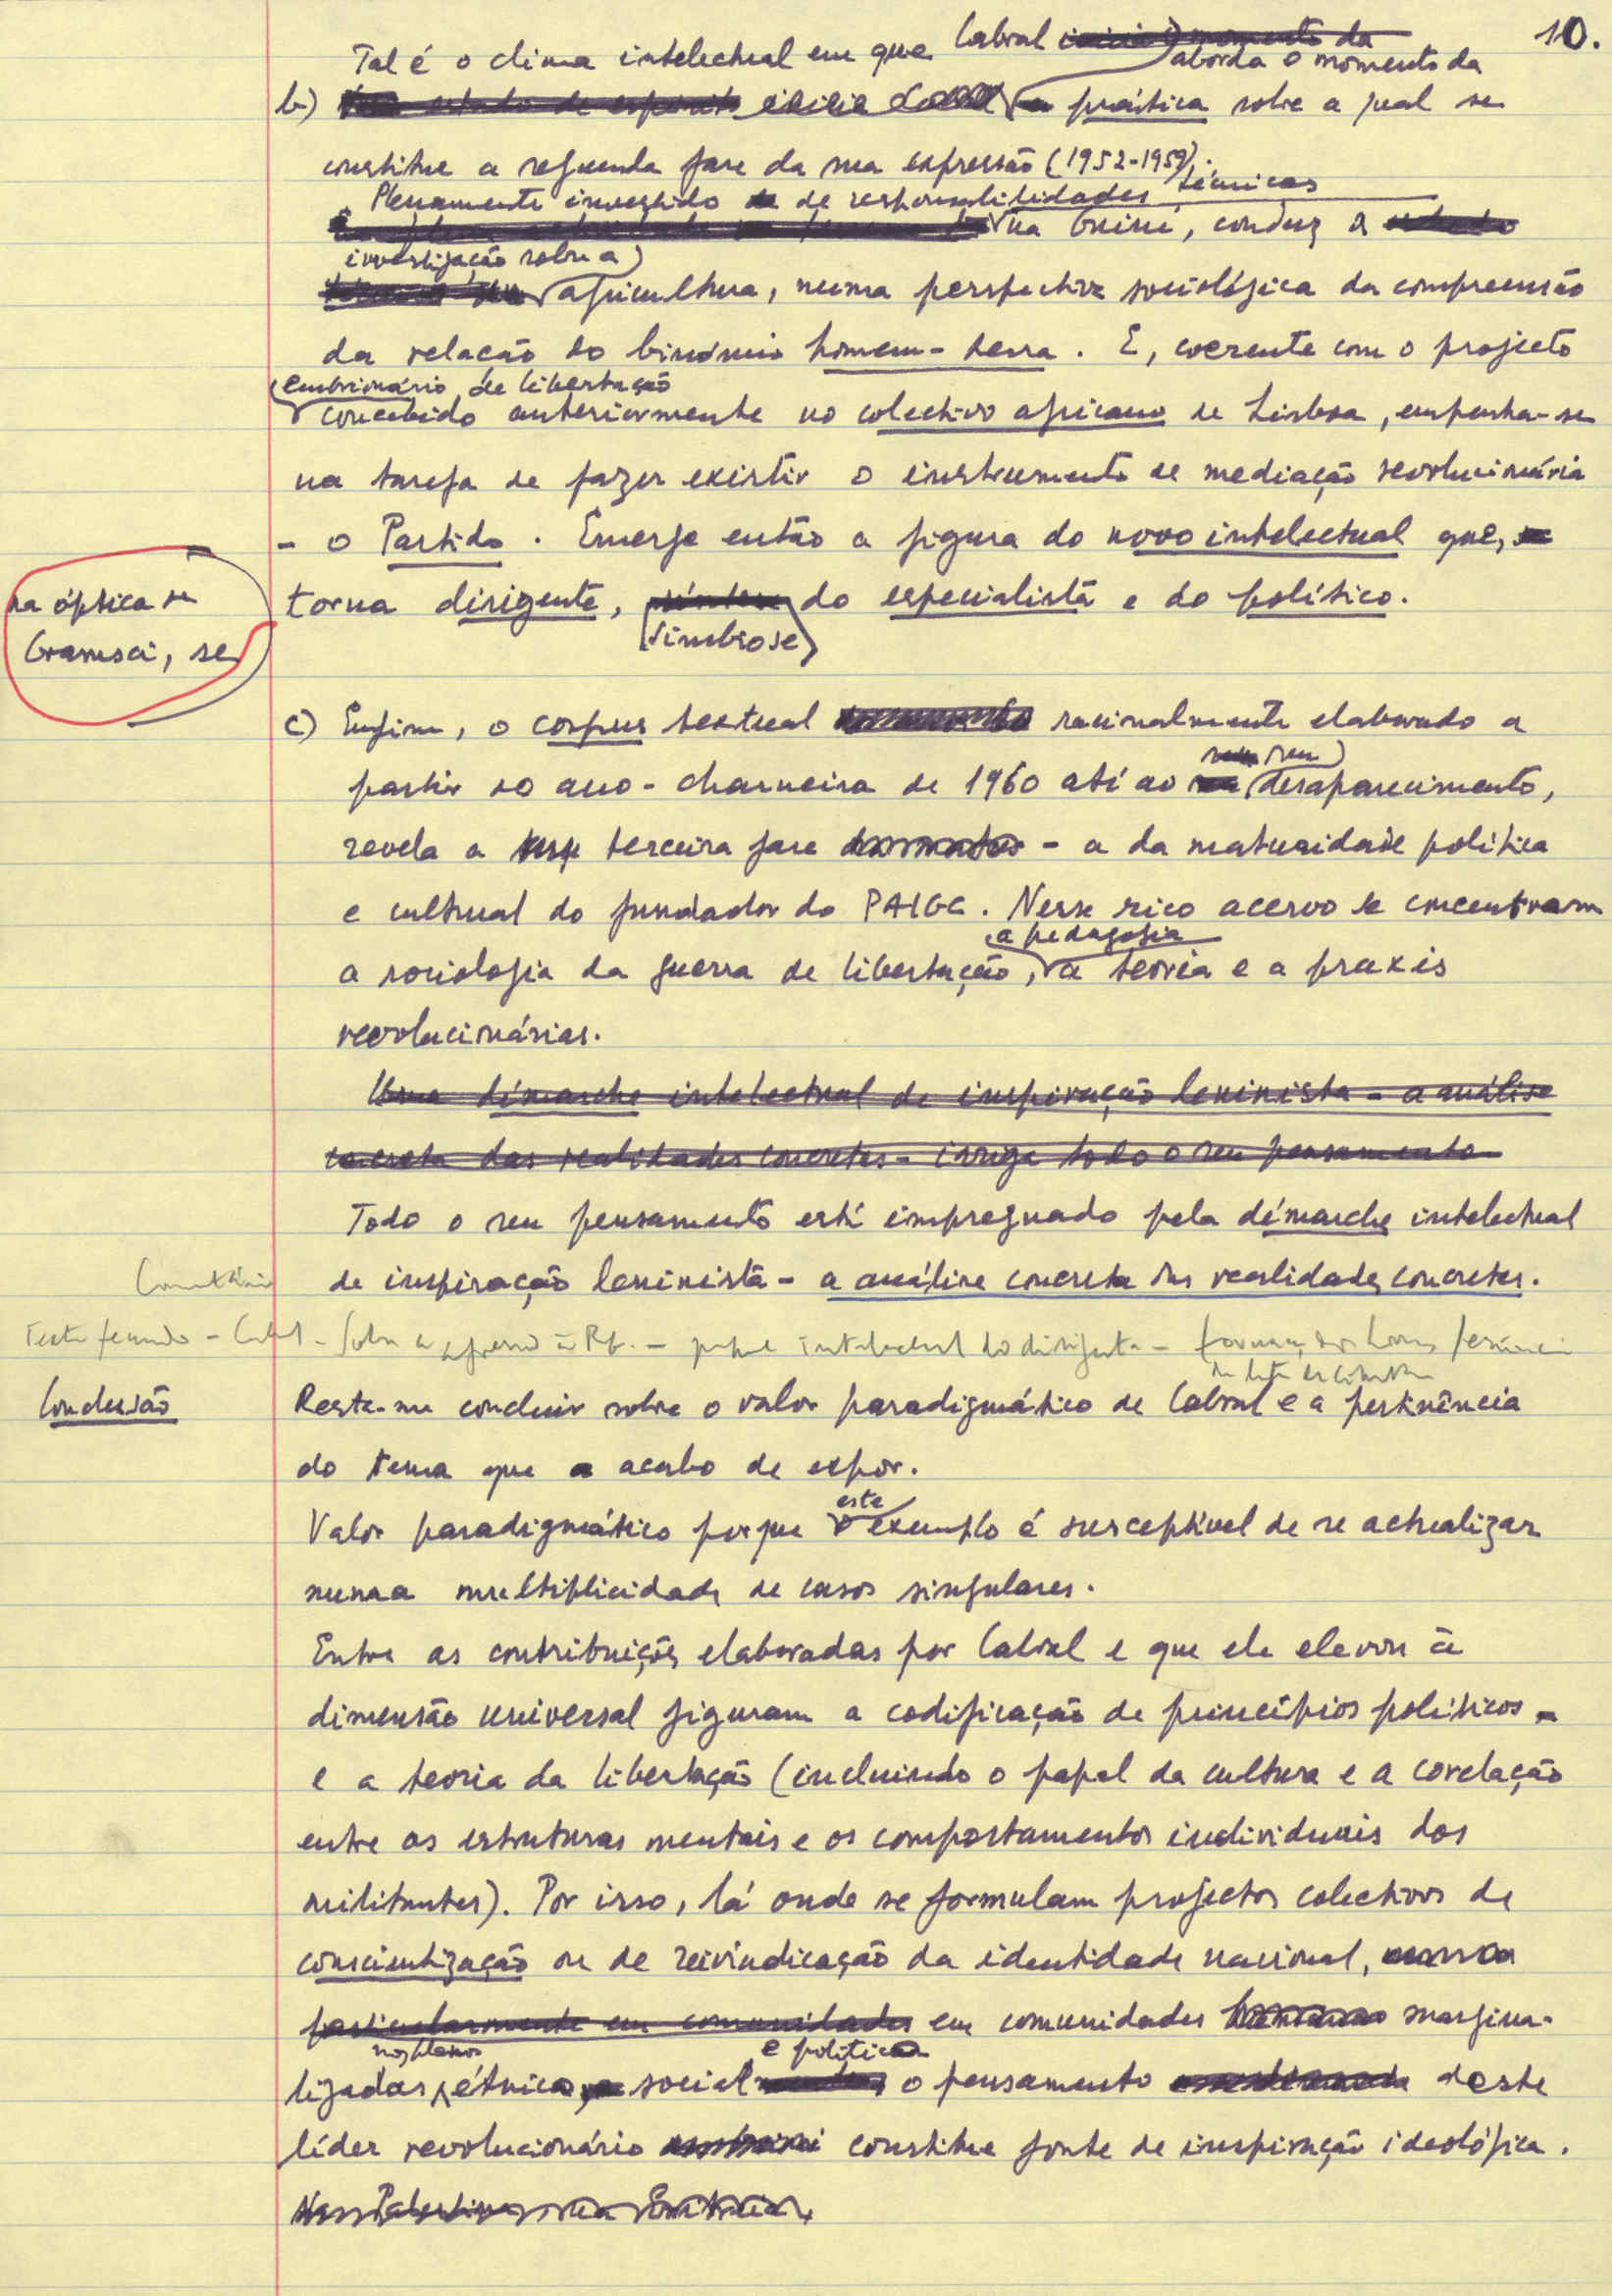 10.
Tal é o clima intelectual em que Cabral
aborda o momento da
b) prática sobre a qual se
constitue a segunda fase da sua expressão (1952-1959).
Plenamente investido de responsabilidades técnicas
na Guiné, conduz a
investigação sobre a
agricultura, numa perspectiva sociológica da compreensão
da relação do binómio homem-terra. E, coerente com o projecto
embrionário de libertação
concebido anteriormente no colectivo africano de Lisboa, empenha-se
na tarefa de fazer existir o instrumento de mediação revolucionária
- o Partido. Emerge então a figura do novo intelectual que,
na óptica de
Gramsci, se
torna dirigente, do especialista e do político.
simbiose
c) Enfim, o corpus textual racionalmente elaborado a
seu
partir do ano-charneira de 1960 até ao desaparecimento,
revela a terceira fase - a da maturidade política
e cultural do fundador do PAIGC. Nesse rico acervo se concentram
a pedagogia
a sociologia da guerra de libertação, a teoria e a praxis
revolucionárias.
Uma démarche intelectual de inspiração leninista - a análise
concreta das realidades concretas - irriga todo o seu pensamento
Todo o seu pensamento está impregnado pela démarche intelectual
de inspiração leninista - a análise concreta das realidades concretas.
Conclusão
Resta-me concluir sobre o valor paradigmático de Cabral e a pertinência
do tema que acabo de expor.
este
Valor paradigmático porque exemplo é susceptível de se actualizar
numa multiplicidade de casos singulares.
Entre as contribuições elaboradas por Cabral e que ele elevou à
dimensão universal figuram a codificação de princípios políticos
e a teoria da libertação (incluindo o papel da cultura e a correlação
entre as estruturas mentais e os comportamentos individuais dos
militantes). Por isso, lá onde se formulam projectos colectivos de
conscientização ou de reivindicação da identidade nacional,
particularmente em comunidades em comunidades margina-
nos planos e político
lizadas étnico, social o pensamento deste
líder revolucionário constitue fonte de inspiração ideológica.